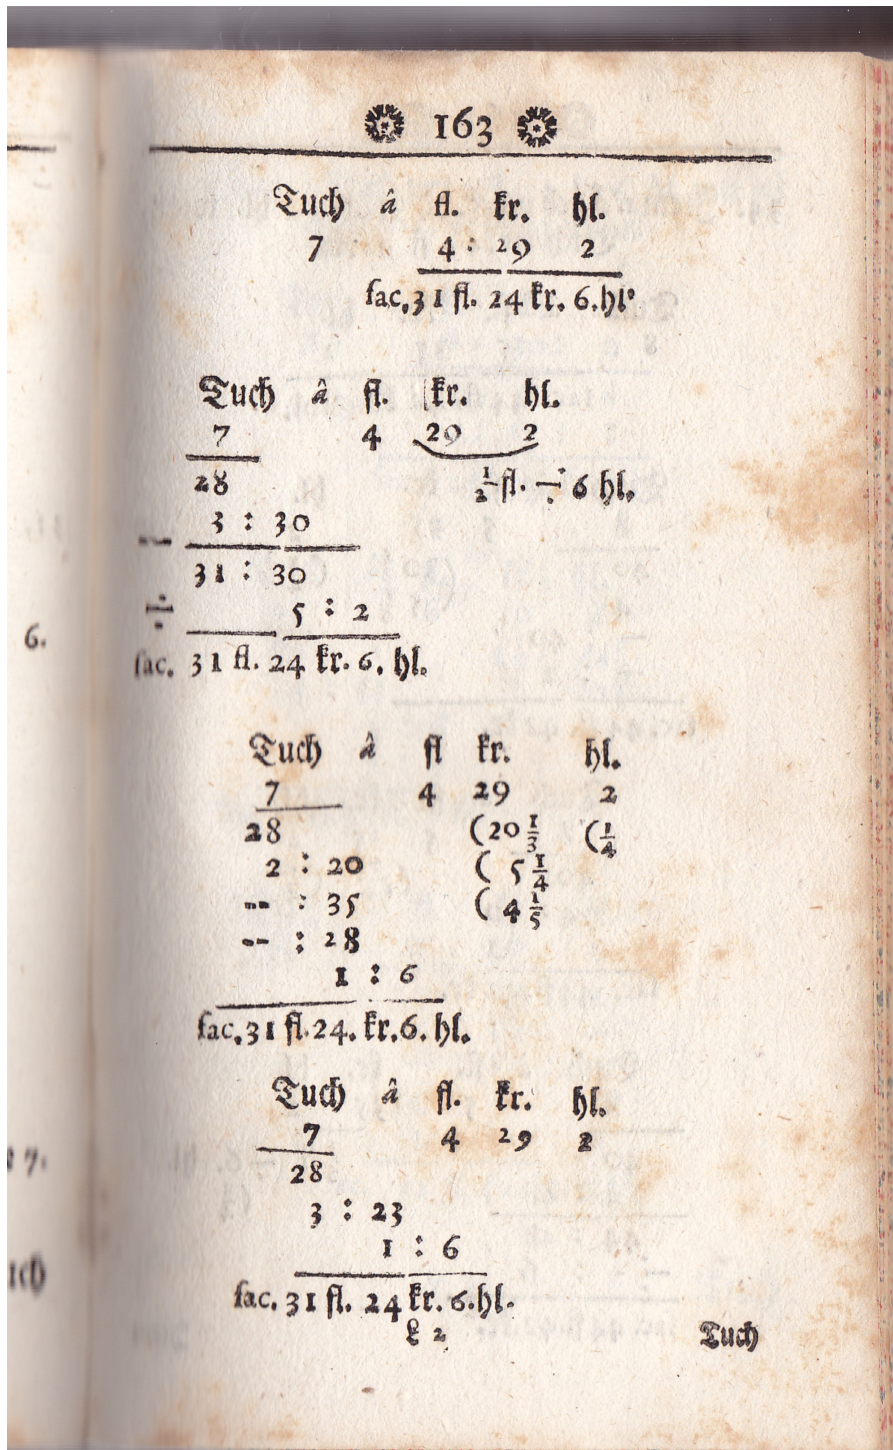 163
Tuch â fl. kr. hl.
7 4 : 29 2
fac. 31 fl. 24 kr. 6. hl.
Tuch â fl. kr. hl.
7 4 29 2
28 ½ fl. ÷ 6 hl.
3 : 30
31 : 30
÷ 5 : 2
fac. 31 fl. 24 kr. 6. hl.
Tuch â fl kr. hl.
7 4 29 2
28 (20 ⅓ (¼
2 : 20 ( 5 ¼
-- : 35 ( 4 ⅕
-- : 28
1 : 6
fac. 31 fl. 24. kr. 6. hl.
Tuch â fl. kr. hl.
7 4 29 2
28
3 : 23
1 : 6
fac. 31 fl. 24 kr. 6. hl.
L 2 Tuch
6.
7.